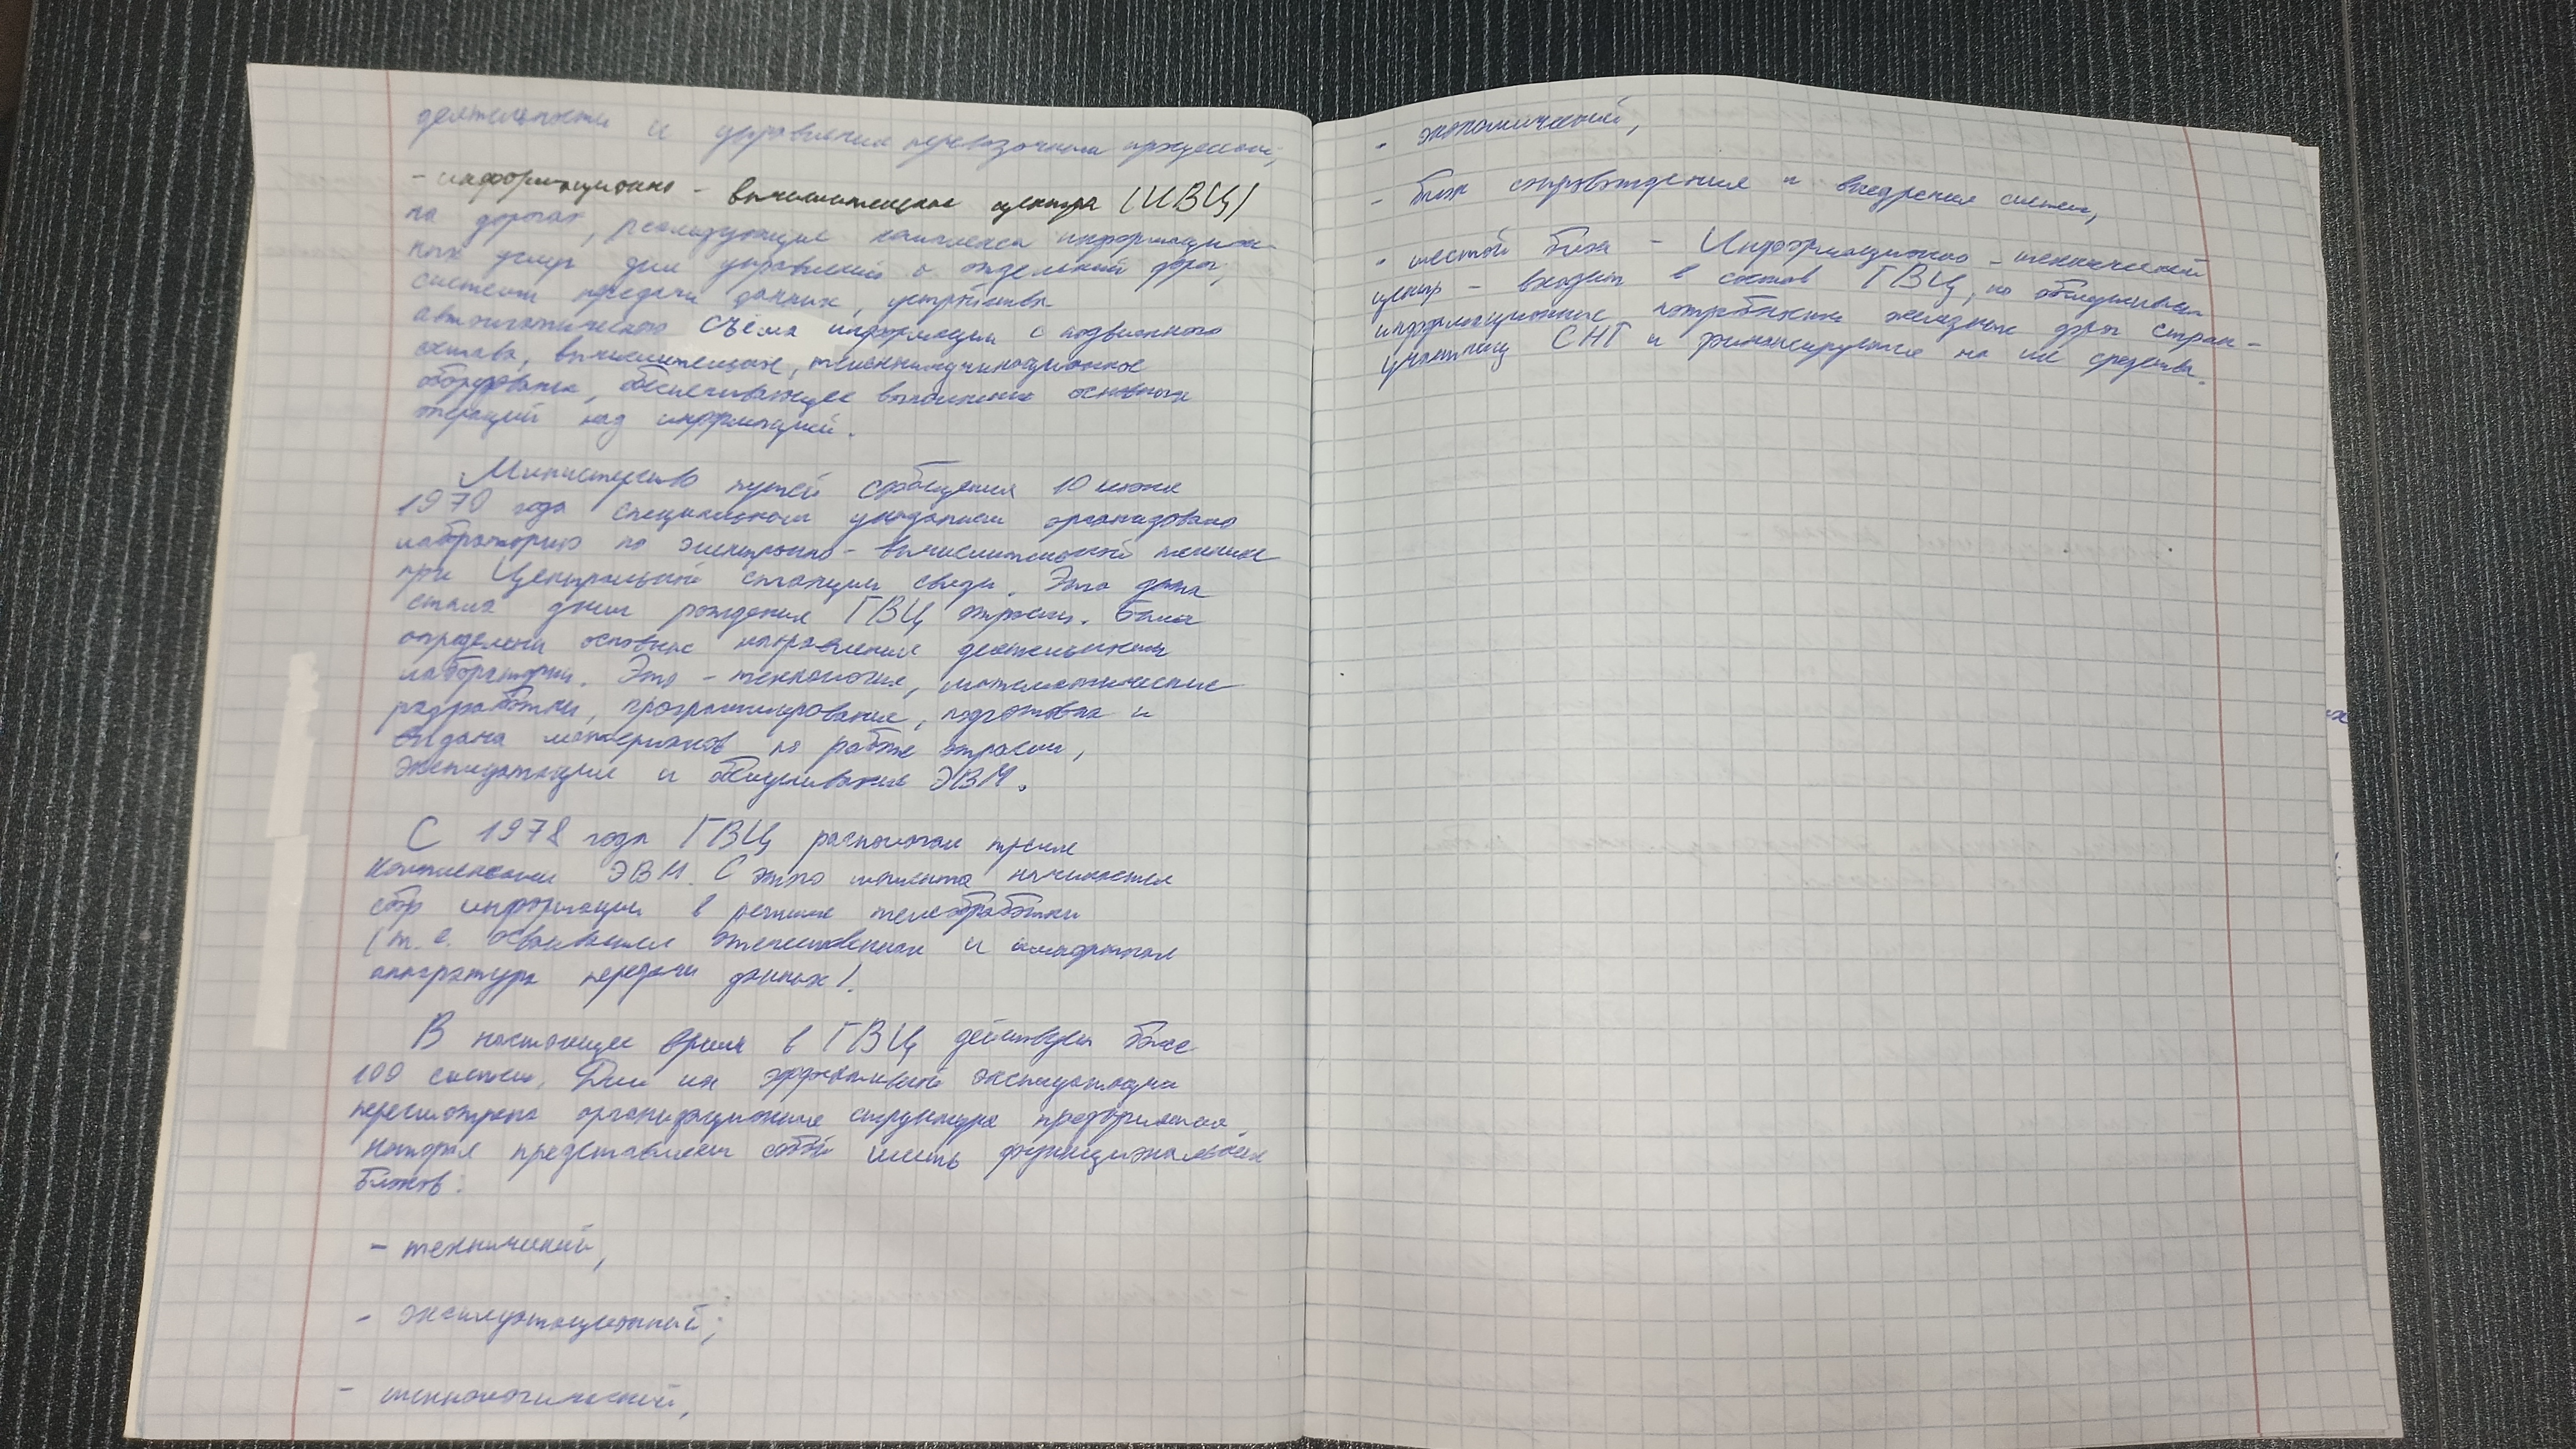 деятельности и управления перевозочным процессом;
- информационно - вычислительные центра (ИВЦ)
на дорогах, реализующие комплекса информацион-
ных услуг для управлений и отделений дорог,
систем передачи данных, устройства
автоматического съёма информации с подвижного
состава, вычислительное, телекоммуникационное
оборудование, обеспечивающее выполнение основных
операций над информацией.
Министерство путей сообщения 10 июня
1970 года специальным указанием организовано
лабораторию по электронно - вычислительной технике
при Центральной станции связи. Эта дата
стала днём рождения ГВЦ отрасли. Были
определены основные направления деятельности
лаборатории. Это - технология, математические
разработки, программирование, подготовка и
выдача материалов по работе отрасли,
эксплуатация и обслуживание ЭВМ.
С 1978 года ГВЦ располагал тремя
комплексами ЭВМ. С этого момента начинается
сбор информации в режиме телеобработки
(т. е. осваивается отечественная и импортная
аппаратура передачи данных).
В настоящее время в ГВЦ действует более
100 систем. Для их эффективной эксплуатации
пересмотрена организационная структура предприятия,
которая представляет собой шесть функциональных
блоков:
- технический,
- эксплуатационный;
- технологический,
- экономический,
- блок сопровождения и внедрения систем,
- шестой блок - Информационно - технический
центр - входит в состав ГВЦ, но обслуживает
информационные потребности железных дорог стран -
участниц СНГ и финансируется на их средства.